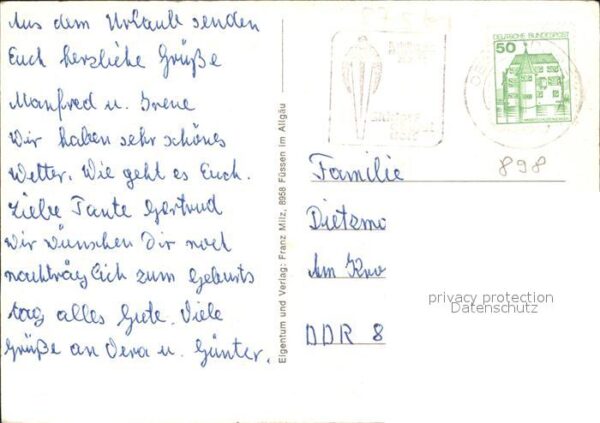 Aus dem Urlaub senden
Euch herzliche Grüße
Manfred u. Irene
Wir haben sehr schönes
Wetter. Wie geht es Euch.
Liebe Tante Gertrud
wir wünschen Dir noch
nachträglich zum Geburts
tag alles Gute. Viele
Grüße an Vera u. Günter.
Eigentum und Verlag: Franz Milz, 8958 Füssen im Allgäu
DEUTSCHE BUNDESPOST
50
898
Familie
Dietzmo
Am
DDR 8
privacy protection
Datenschutz